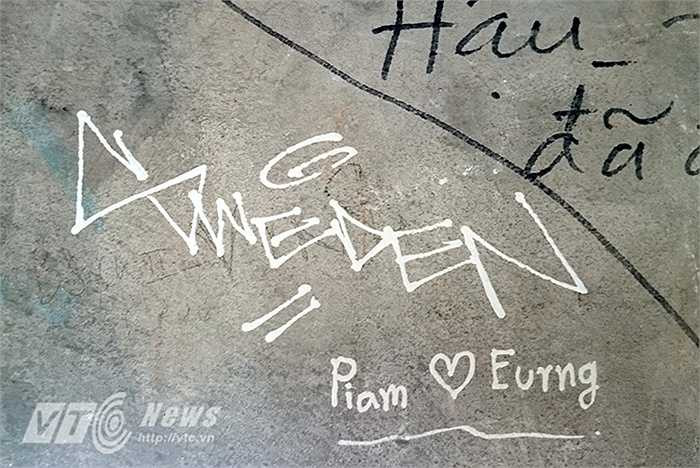 Hậu_
đã
SWEDEN
Piam ♡ Eurng
VTC News
http://vtc.vn